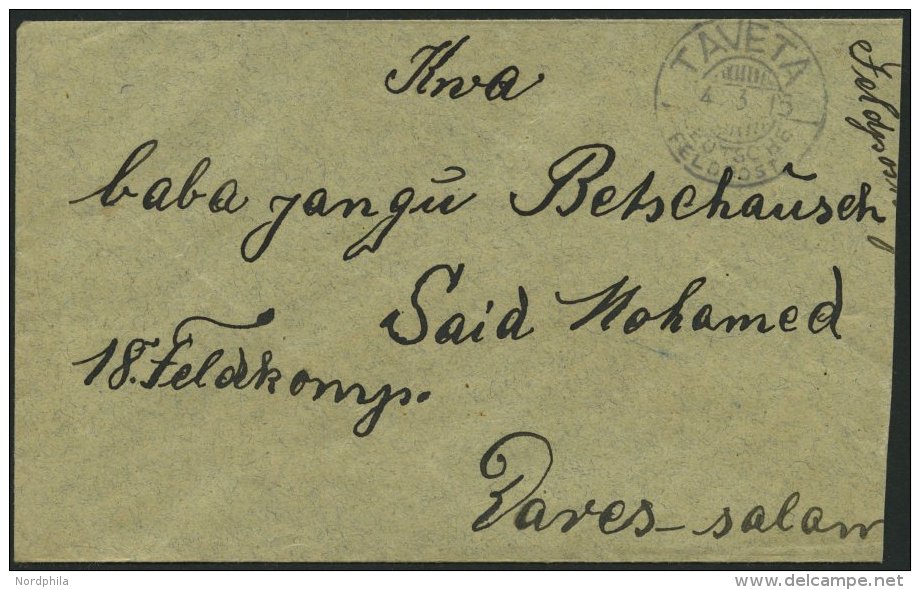 Kwa
Feldpost
TAVETA
4 3 15
DEUTSCHE
FELDPOST
baba jangu Betschausch
Said Mohamed
18. Feldkomp.
Dares-salam
Nordphila
www.delcampe.net